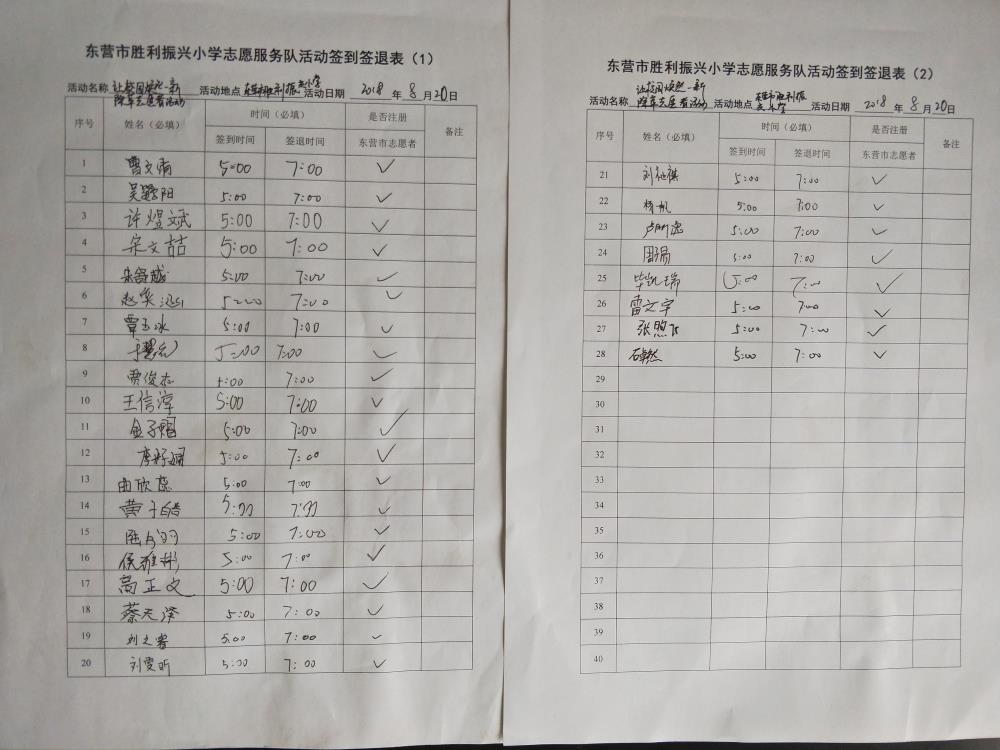 东营市胜利振兴小学志愿服务队活动签到签退表（1）
活动名称 让校园焕然一新 除草志愿者活动 活动地点 东营市胜利振兴小学 活动日期 2018 年 8 月 20 日
序号 姓名（必填） 时间（必填） 是否注册 备注
签到时间 签退时间 东营市志愿者
1 曹文 5:00 7:00 ✓
2 吴 阳 5:00 7:00 ✓
3 许煜斌 5:00 7:00 ✓
4 宋文喆 5:00 7:00 ✓
5 朱舒越 5:00 7:00 ✓
6 赵奕涵 5:00 7:00 ✓
7 覃玉冰 5:00 7:00 ✓
8 于 5:00 7:00 ✓
9 贾俊 5:00 7:00 ✓
10 王信淳 5:00 7:00 ✓
11 金子熠 5:00 7:00 ✓
12 5:00 7:00 ✓
13 曲欣蕊 5:00 7:00 ✓
14 黄子皓 5:00 7:00 ✓
15 陆 5:00 7:00 ✓
16 侯雅彬 5:00 7:00 ✓
17 高正文 5:00 7:00 ✓
18 蔡天泽 5:00 7:00 ✓
19 刘之睿 5:00 7:00 ✓
20 刘雯昕 5:00 7:00 ✓
东营市胜利振兴小学志愿服务队活动签到签退表（2）
活动名称 让校园焕然一新 除草志愿者活动 活动地点 东营市胜利振兴小学 活动日期 2018 年 8 月 20 日
序号 姓名（必填） 时间（必填） 是否注册 备注
签到时间 签退时间 东营市志愿者
21 刘 祺 5:00 7:00 ✓
22 杨帆 5:00 7:00 ✓
23 卢 5:00 7:00 ✓
24 5:00 7:00 ✓
25 毕凯瑞 5:00 7:00 ✓
26 雷文宇 5:00 7:00 ✓
27 张煦 5:00 7:00 ✓
28 石 然 5:00 7:00 ✓
29
30
31
32
33
34
35
36
37
38
39
40